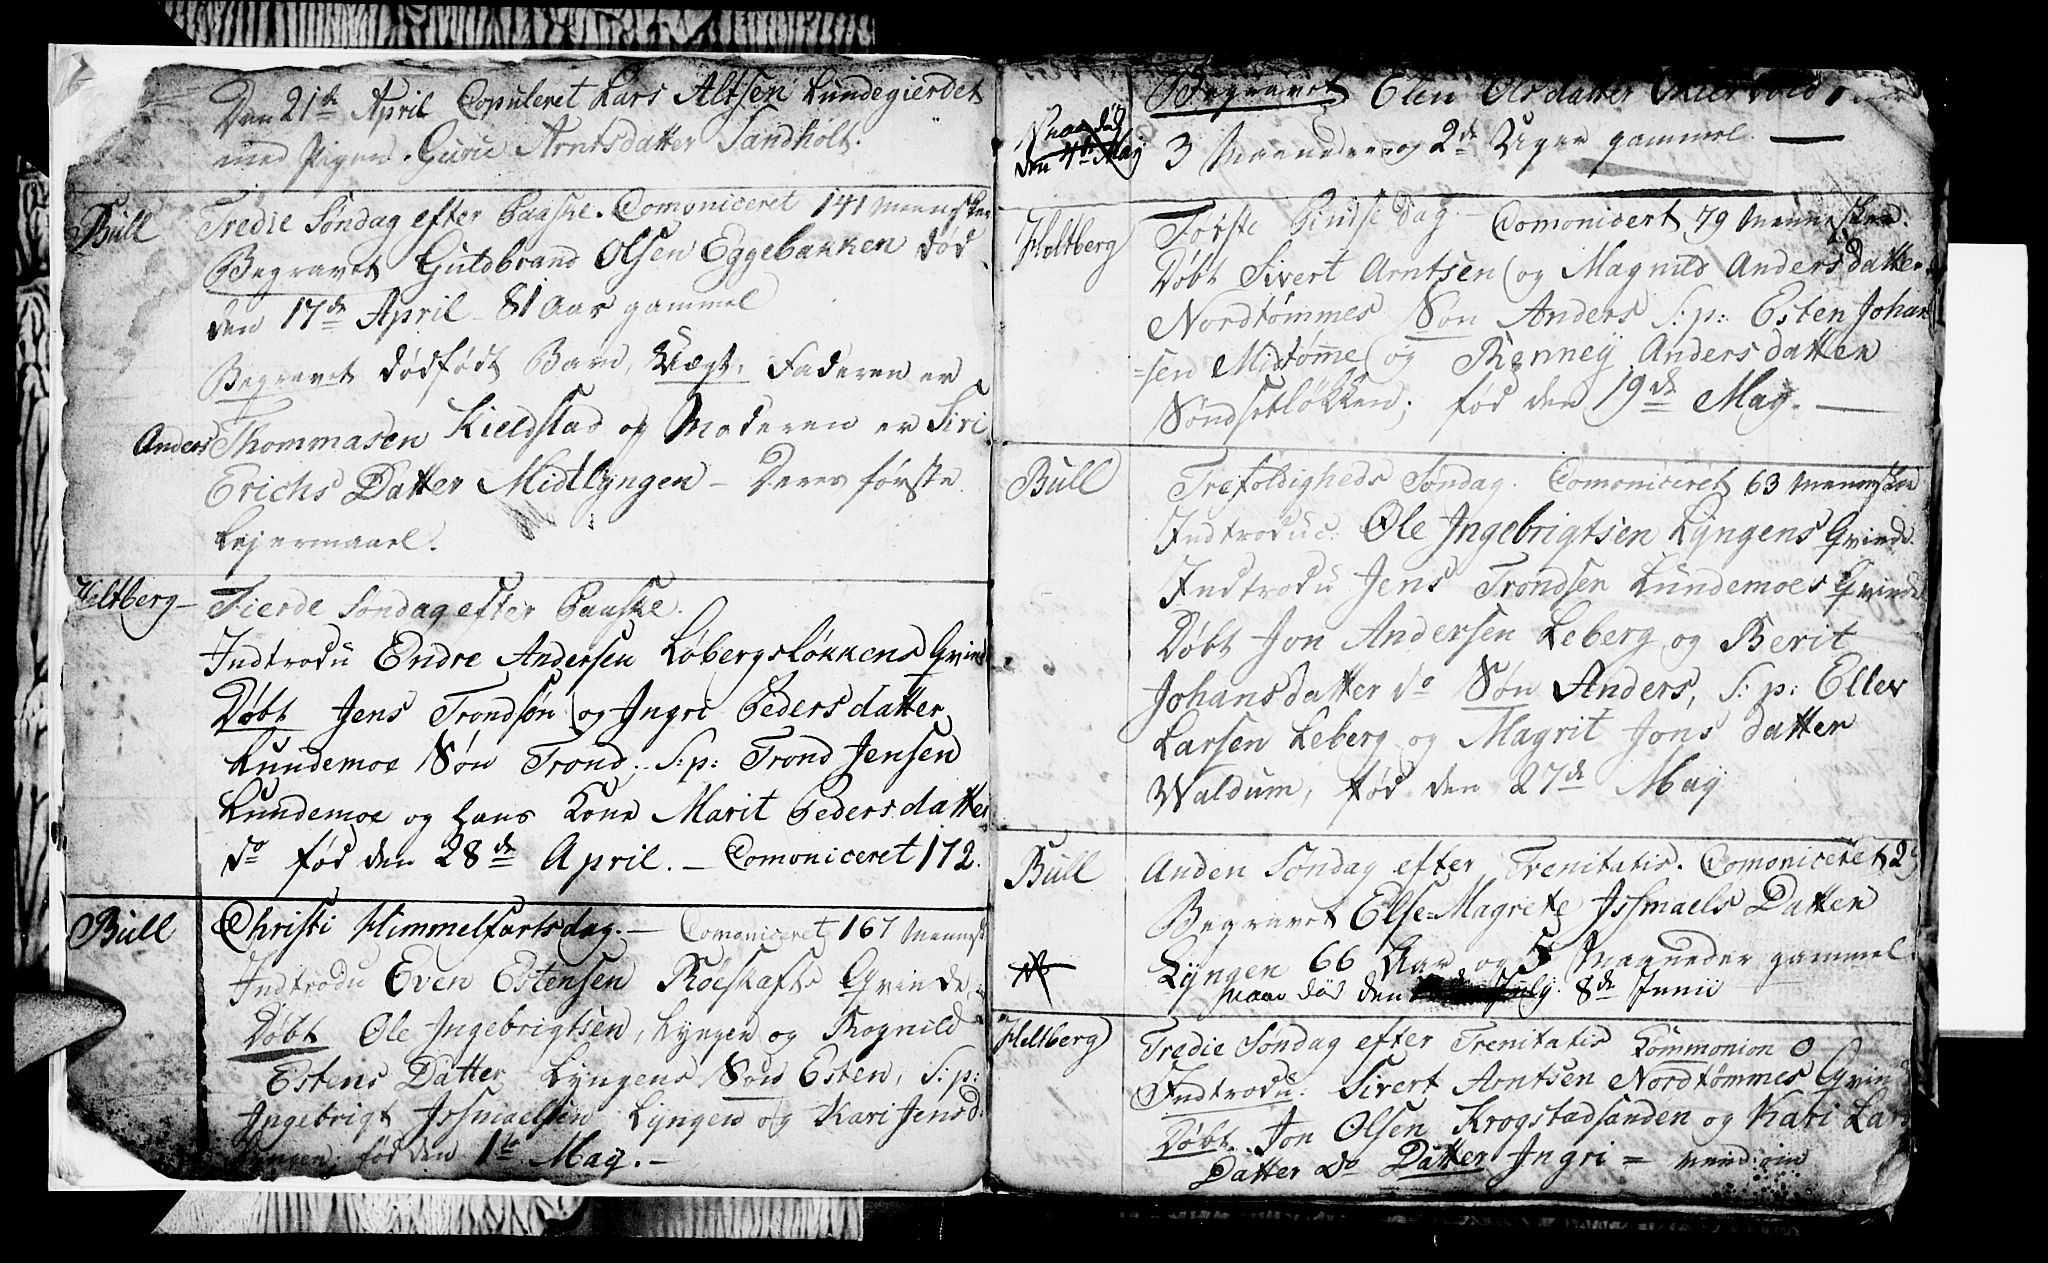 Den 21de April Copuleret Lars Altsen Lundegierdet
med Pigen Guru Arntsdatter Sandholt.
Büll
Tredie Søndag efter Paaske. Comoniceret 141 Mennesker
Begravet Guldbrand Olsen Eggebakken død
den 17de April 81 Aar gammel
Begravet dødfødt Barn, Uægt, Faderen er
Anders Thommasen Kieldstad og Moderen er Siri
Erichs Datter Midtlyngen – Deres første
Lejermaael.
Heltberg –
Fierde Søndag efter Paaske.
Indtrodu Endre Andersen Løbergsløkkens Qvind
Døbt Jens Trondsøn og Ingri Pedersdatter
Lundemoe Søn Trond, S:p: Trond Jensen
Lundemoe og hans Kone Marit Pedersdatter
do fød den 28de April. – Comoniceret 172.
Büll
Christi Himmelfartsdag. – Comoniceret 167 Mennesk
Indtrodu Even Estensen Roeskafts Qvinde,
Døbt Ole Ingebrigtsen, Lyngen og Rognild
Estens Datter Lyngens Søn Esten, S:p:
Ingebrigt Issmaelsen Lyngen og Kari Jensd:
Lyngen, fød den 1te May. –
Begravet Elen Olsdatter
den 4de May
3 Maaneder og 2de Uger gammel
Heltberg
Første Pindse Dag – Comonicert 79 Mennesker.
Døbt Sivert Arntsen og Magnild Andersdatter
Nordtømmes Søn Anders S:p: Esten Johan
=sen Midtømme og Renney Andersdatter
Søndsetløkken, fød den 19de May. –
Büll
Trefoldigheds Søndag. Comoniceret 63 Mennesker
Indtroduc: Ole Ingebrigtsen Lyngens Qvinde.
Indtrodu Jens Trondsen Lundemoes Qvinde
Døbt Jon Andersen Leberg og Berit
Johansdatter do Søn Anders, S:p: Eller
Larsen Leberg og Magrit Jons datter
Waldum, fød den 27de May
Büll
Anden Søndag efter Trenitatis. Comoniceret 2
Begravet Else=Magrete Issmaels Datter
Lyngen 66 Aar og 5 Maaneder gammel.
Naar død den July. 8de Junii
Heltberg
Tredie Søndag efter Trenitatis Kommonion 0
Indtrodu: Sivert Arntsen Nordtømmes Qvind
Døbt Jon Olsen Krogstadsanden og Kari Lars
Datter do Datter Ingri = vend om